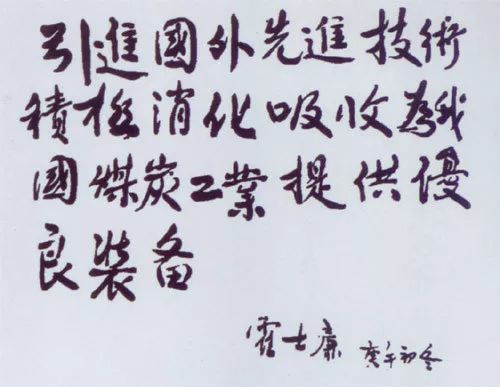 引進國外先進技術
積極消化吸收為我
國煤炭工業提供優
良装备
霍士廉 庚午初冬